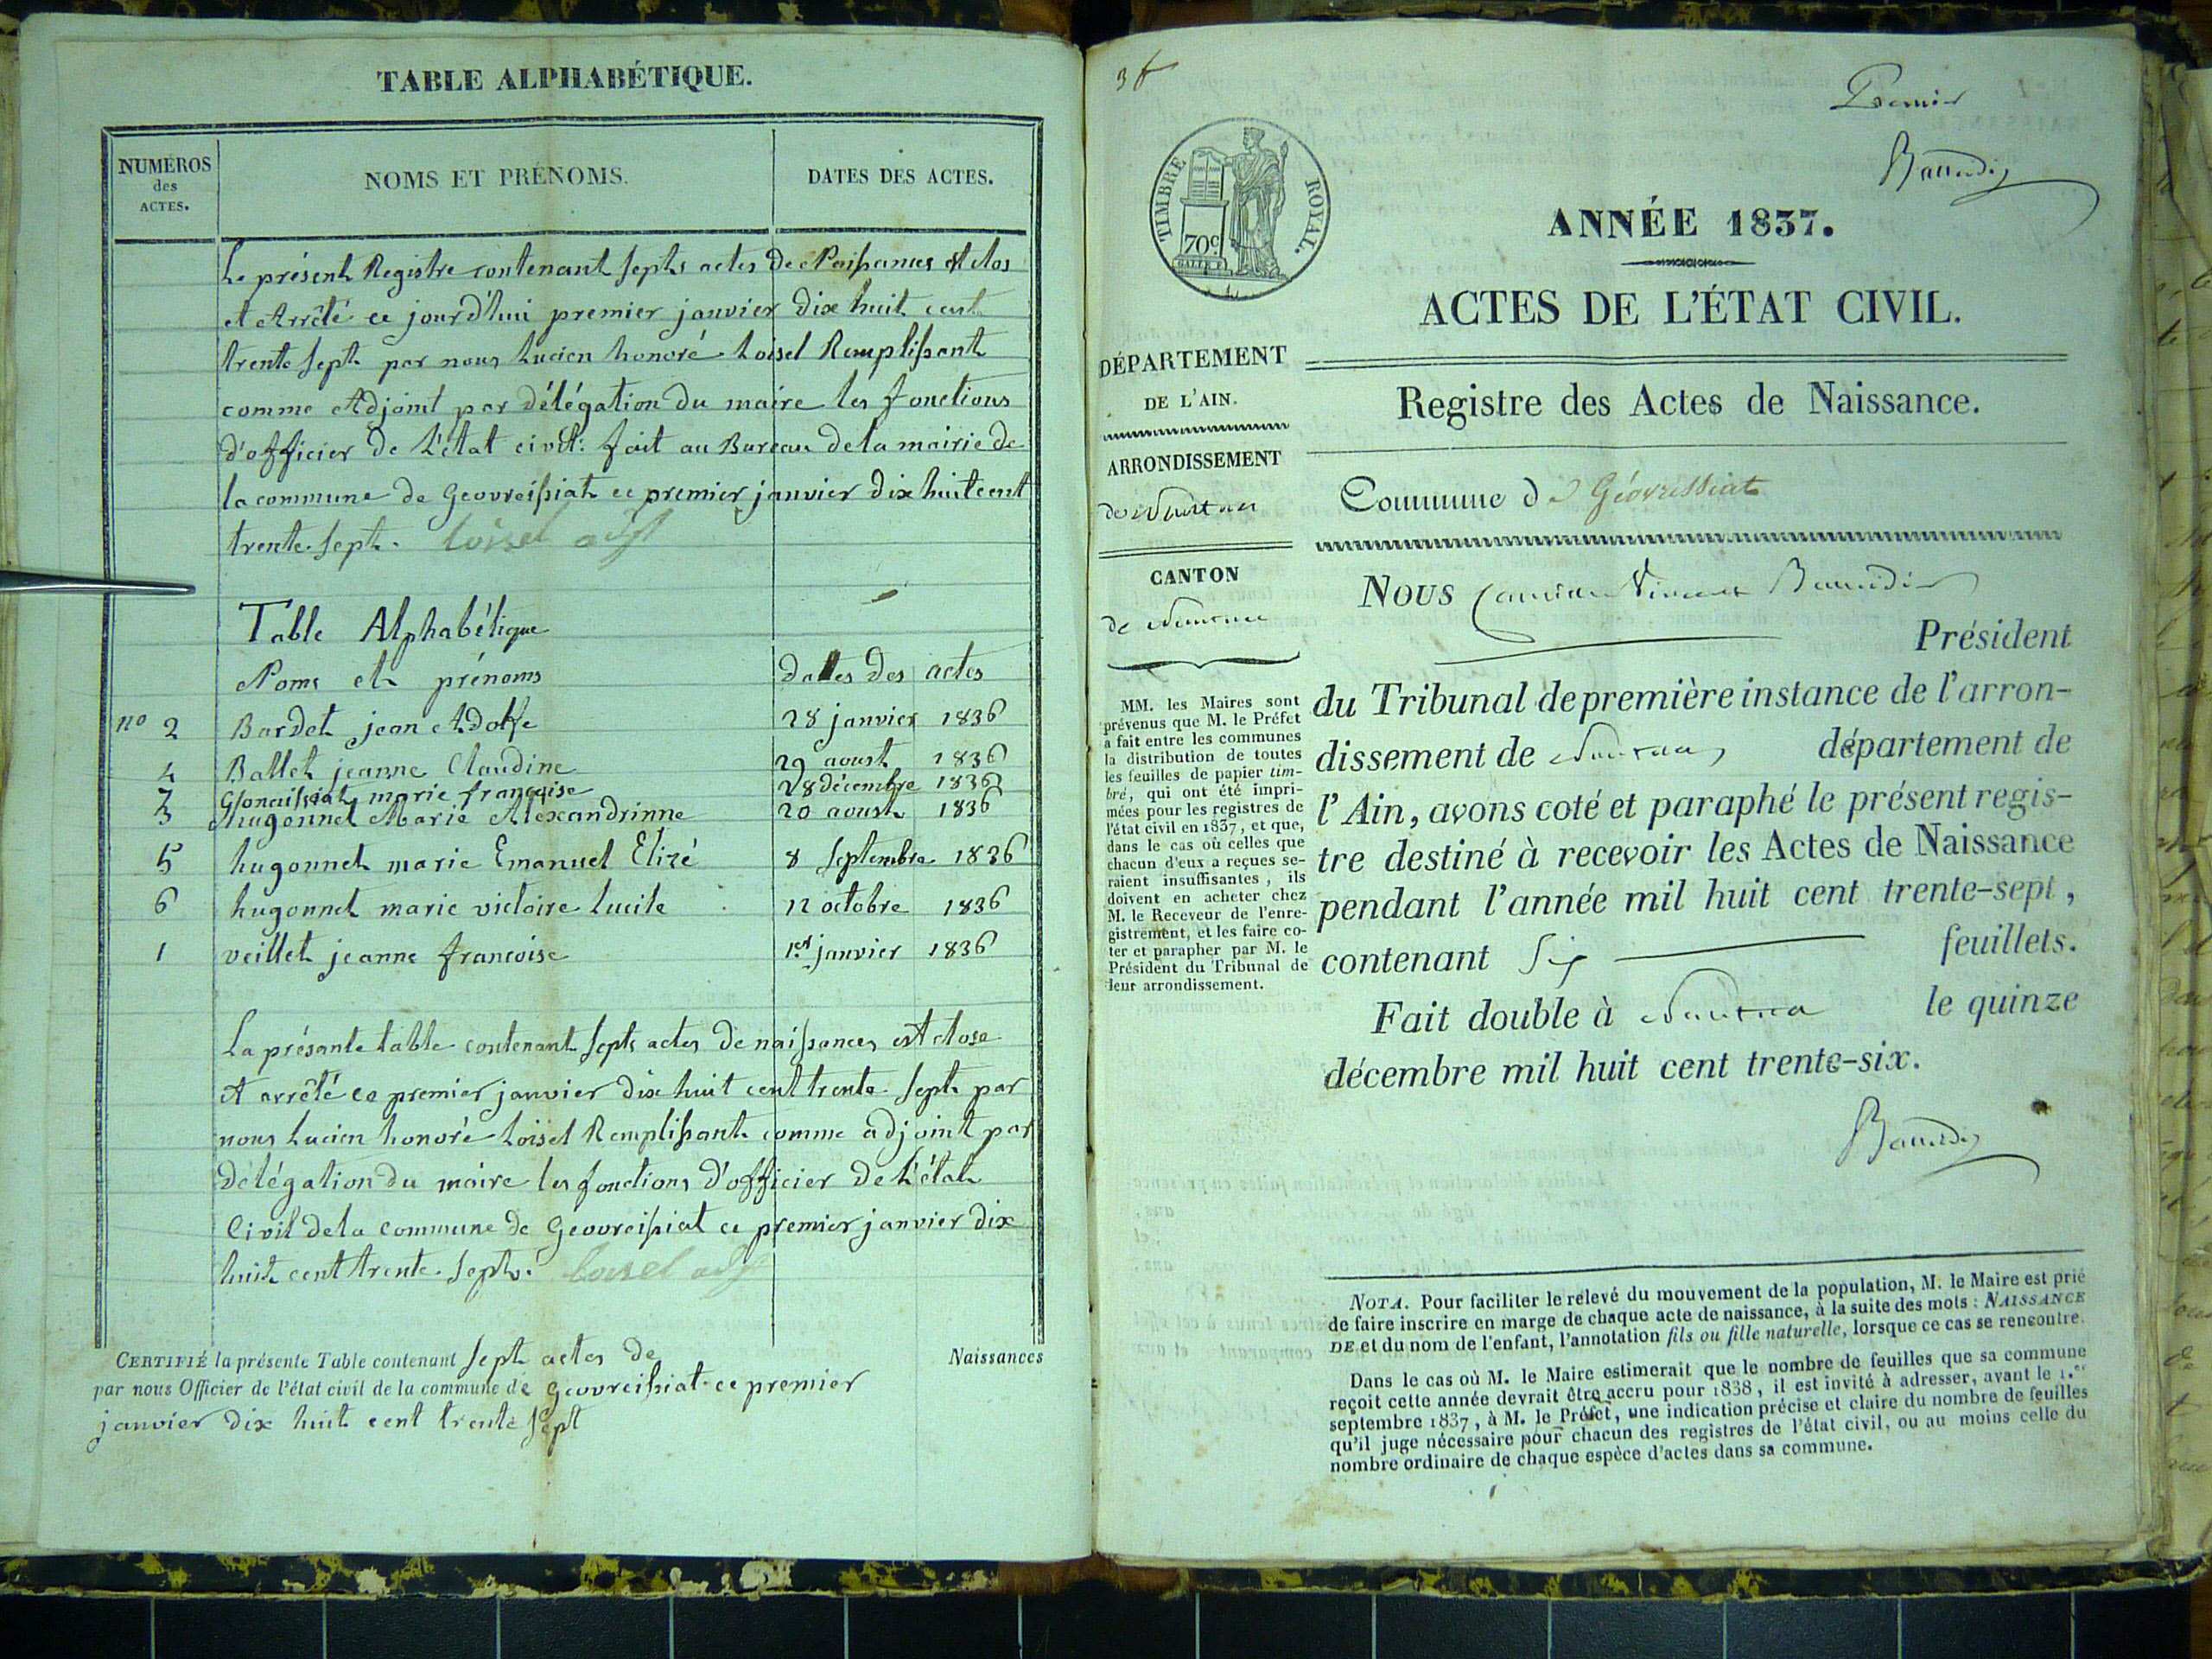 TABLE ALPHABÉTIQUE.
NUMÉROS
des
ACTES.
NOMS ET PRÉNOMS.
DATES DES ACTES.
Le présent Registre contenant septs actes de Naissances est clos
et Arrêté ce jourd'hui premier janvier dix huit cent
trente sept par nous Lucien honoré Loisel Remplissant
comme Adjoint par délégation du maire les fonctions
d'officier de l'état civil: fait au Bureau de la mairie de
la commune de Geovreissiat ce premier janvier dix huit cent
trente-sept. loisel adjt
Table Alphabétique
Noms et prénoms
Dates des actes
no 2 Bardet jean Adolfe 28 janvier 1836
4 Ballet jeanne Claudine 29 aoust 1836
7 marie françoise 28 décembre 1836
3 hugonnet Marie Alexandrinne 20 aoust 1836
5 hugonnet marie Emanuel Elizé 8 Septembre 1836
6 hugonnet marie victoire lucile 12 octobre 1836
1 veillet jeanne françoise 1er janvier 1836
La présante table contenant septs actes de naissances est close
et arrêté ce premier janvier dix huit cent trente-sept par
nous Lucien honoré Loisel Remplissant comme adjoint par
délégation du maire les fonctions d'officier de l'état
Civil de la commune de Geovreissiat ce premier janvier dix
huit cent trente-sept. loisel adjt
CERTIFIÉ la présente Table contenant sept actes de Naissances
par nous Officier de l'état civil de la commune de Geovreissiat ce premier
janvier dix huit cent trente sept
3f
Premier
Baudin
TIMBRE ROYAL.
70c
ANNÉE 1837.
ACTES DE L'ÉTAT CIVIL.
Registre des Actes de Naissance.
DÉPARTEMENT
DE L'AIN.
ARRONDISSEMENT
de Nantua
CANTON
de Nantua
MM. les Maires sont
prévenus que M. le Préfet
a fait entre les communes
la distribution de toutes
les feuilles de papier tim-
bré, qui ont été impri-
mées pour les registres de
l'état civil en 1837, et que,
dans le cas où celles que
chacun d'eux a reçues se-
raient insuffisantes, ils
doivent en acheter chez
M. le Receveur de l'enre-
gistrement, et les faire co-
ter et parapher par M. le
Président du Tribunal de
leur arrondissement.
Commune de Géovressiat
NOUS Vincent
Président
du Tribunal de première instance de l'arron-
dissement de Nantua, département de
l'Ain, avons coté et paraphé le présent regis-
tre destiné à recevoir les Actes de Naissance
pendant l'année mil huit cent trente-sept,
contenant Six feuillets.
Fait double à Nantua le quinze
décembre mil huit cent trente-six.
Baudin
NOTA. Pour faciliter le relevé du mouvement de la population, M. le Maire est prié
de faire inscrire en marge de chaque acte de naissance, à la suite des mots : NAISSANCE
DE et du nom de l'enfant, l'annotation fils ou fille naturelle, lorsque ce cas se rencontre.
Dans le cas où M. le Maire estimerait que le nombre de feuilles que sa commune
reçoit cette année devrait être accru pour 1838, il est invité à adresser, avant le 1.er
septembre 1837, à M. le Préfet, une indication précise et claire du nombre de feuilles
qu'il juge nécessaire pour chacun des registres de l'état civil, ou au moins celle du
nombre ordinaire de chaque espèce d'actes dans sa commune.